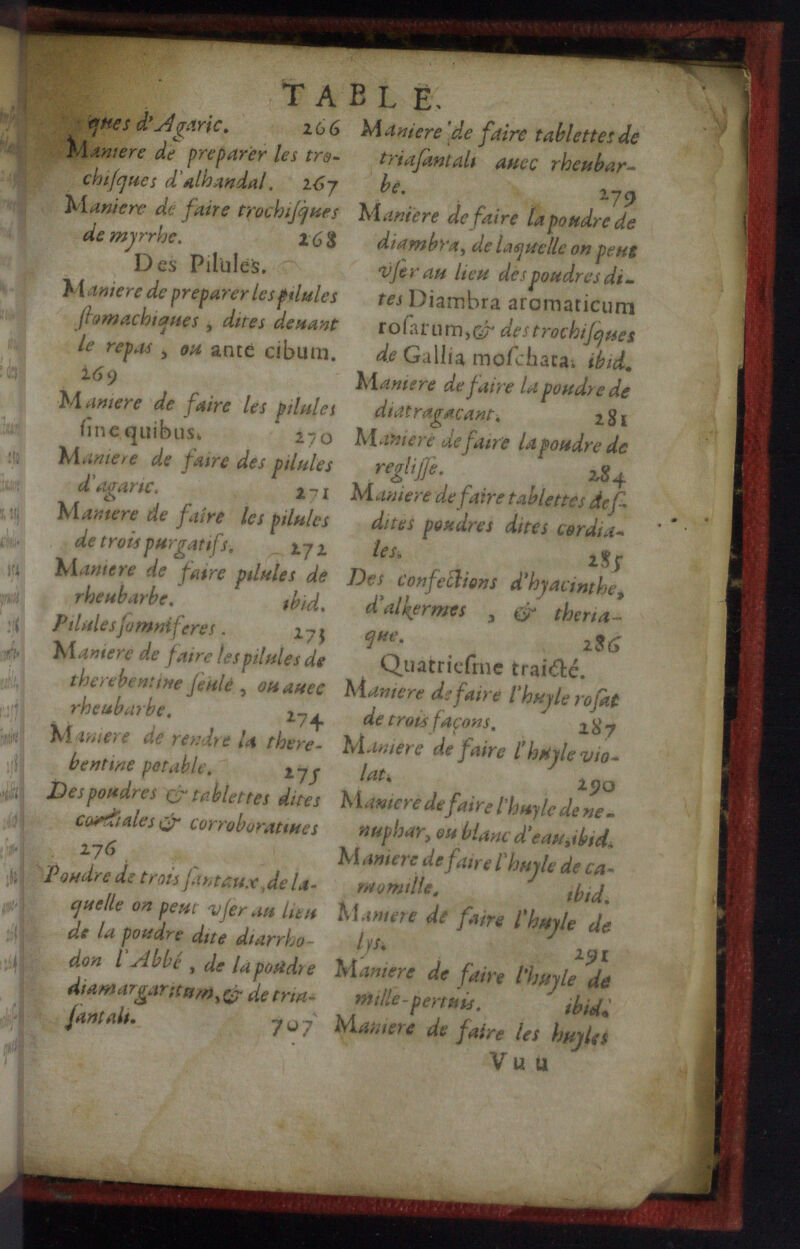 TABLE.
ques d'Agaric. 266
Maniere de preparer les tro-
chisques d'alhandal. 267
Maniere de faire trochisques
de myrrhe. 268
Des Pilules.
Maniere de preparer les pilules
stomachiques, dites deuant
le repas, ou ante cibum.
269
Maniere de faire les pilules
sine quibus. 270
Maniere de faire des pilules
d'agaric. 271
Maniere de faire les pilules
de trois purgatifs. 272
Maniere de faire pilules de
rheubarbe. ibid.
Pilules somniferes. 273
Maniere de faire les pilules de
therebentine seule, ou auec
rheubarbe. 274
Maniere de rendre la there-
bentine potable. 275
Des poudres & tablettes dites
cordiales & corroboratiues
276
Poudre de trois santaux, de la-
quelle on peut vser au lieu
de la poudre dite diarrho-
don l'Abbé, de la poudre
diamargaritum, & de tria-
santali. 707
Maniere de faire tablettes de
triasantali auec rheubar-
be. 279
Maniere de faire la poudre de
diambra, de laquelle on peut
vser au lieu des poudres di-
tes Diambra aromaticum
rosarum, & des trochisques
de Gallia moschata. ibid.
Maniere de faire la poudre de
diatragacant. 281
Maniere de faire la poudre de
reglisse. 284
Maniere de faire tablettes des-
dites poudres dites cordia-
les. 285
Des confections d'hyacinthe,
d'alkermes, & theria-
que. 286
Quatriesme traicté.
Maniere de faire l'huyle rosat
de trois façons. 287
Maniere de faire l'huyle vio-
lat. 290
Maniere de faire l'huyle de ne-
nuphar, ou blanc d'eau, ibid.
Maniere de faire l'huyle de ca-
momille. ibid.
Maniere de faire l'huyle de
lys. 291
Maniere de faire l'huyle de
mille-pertuis. ibid.
Maniere de faire les huyles
Vuu